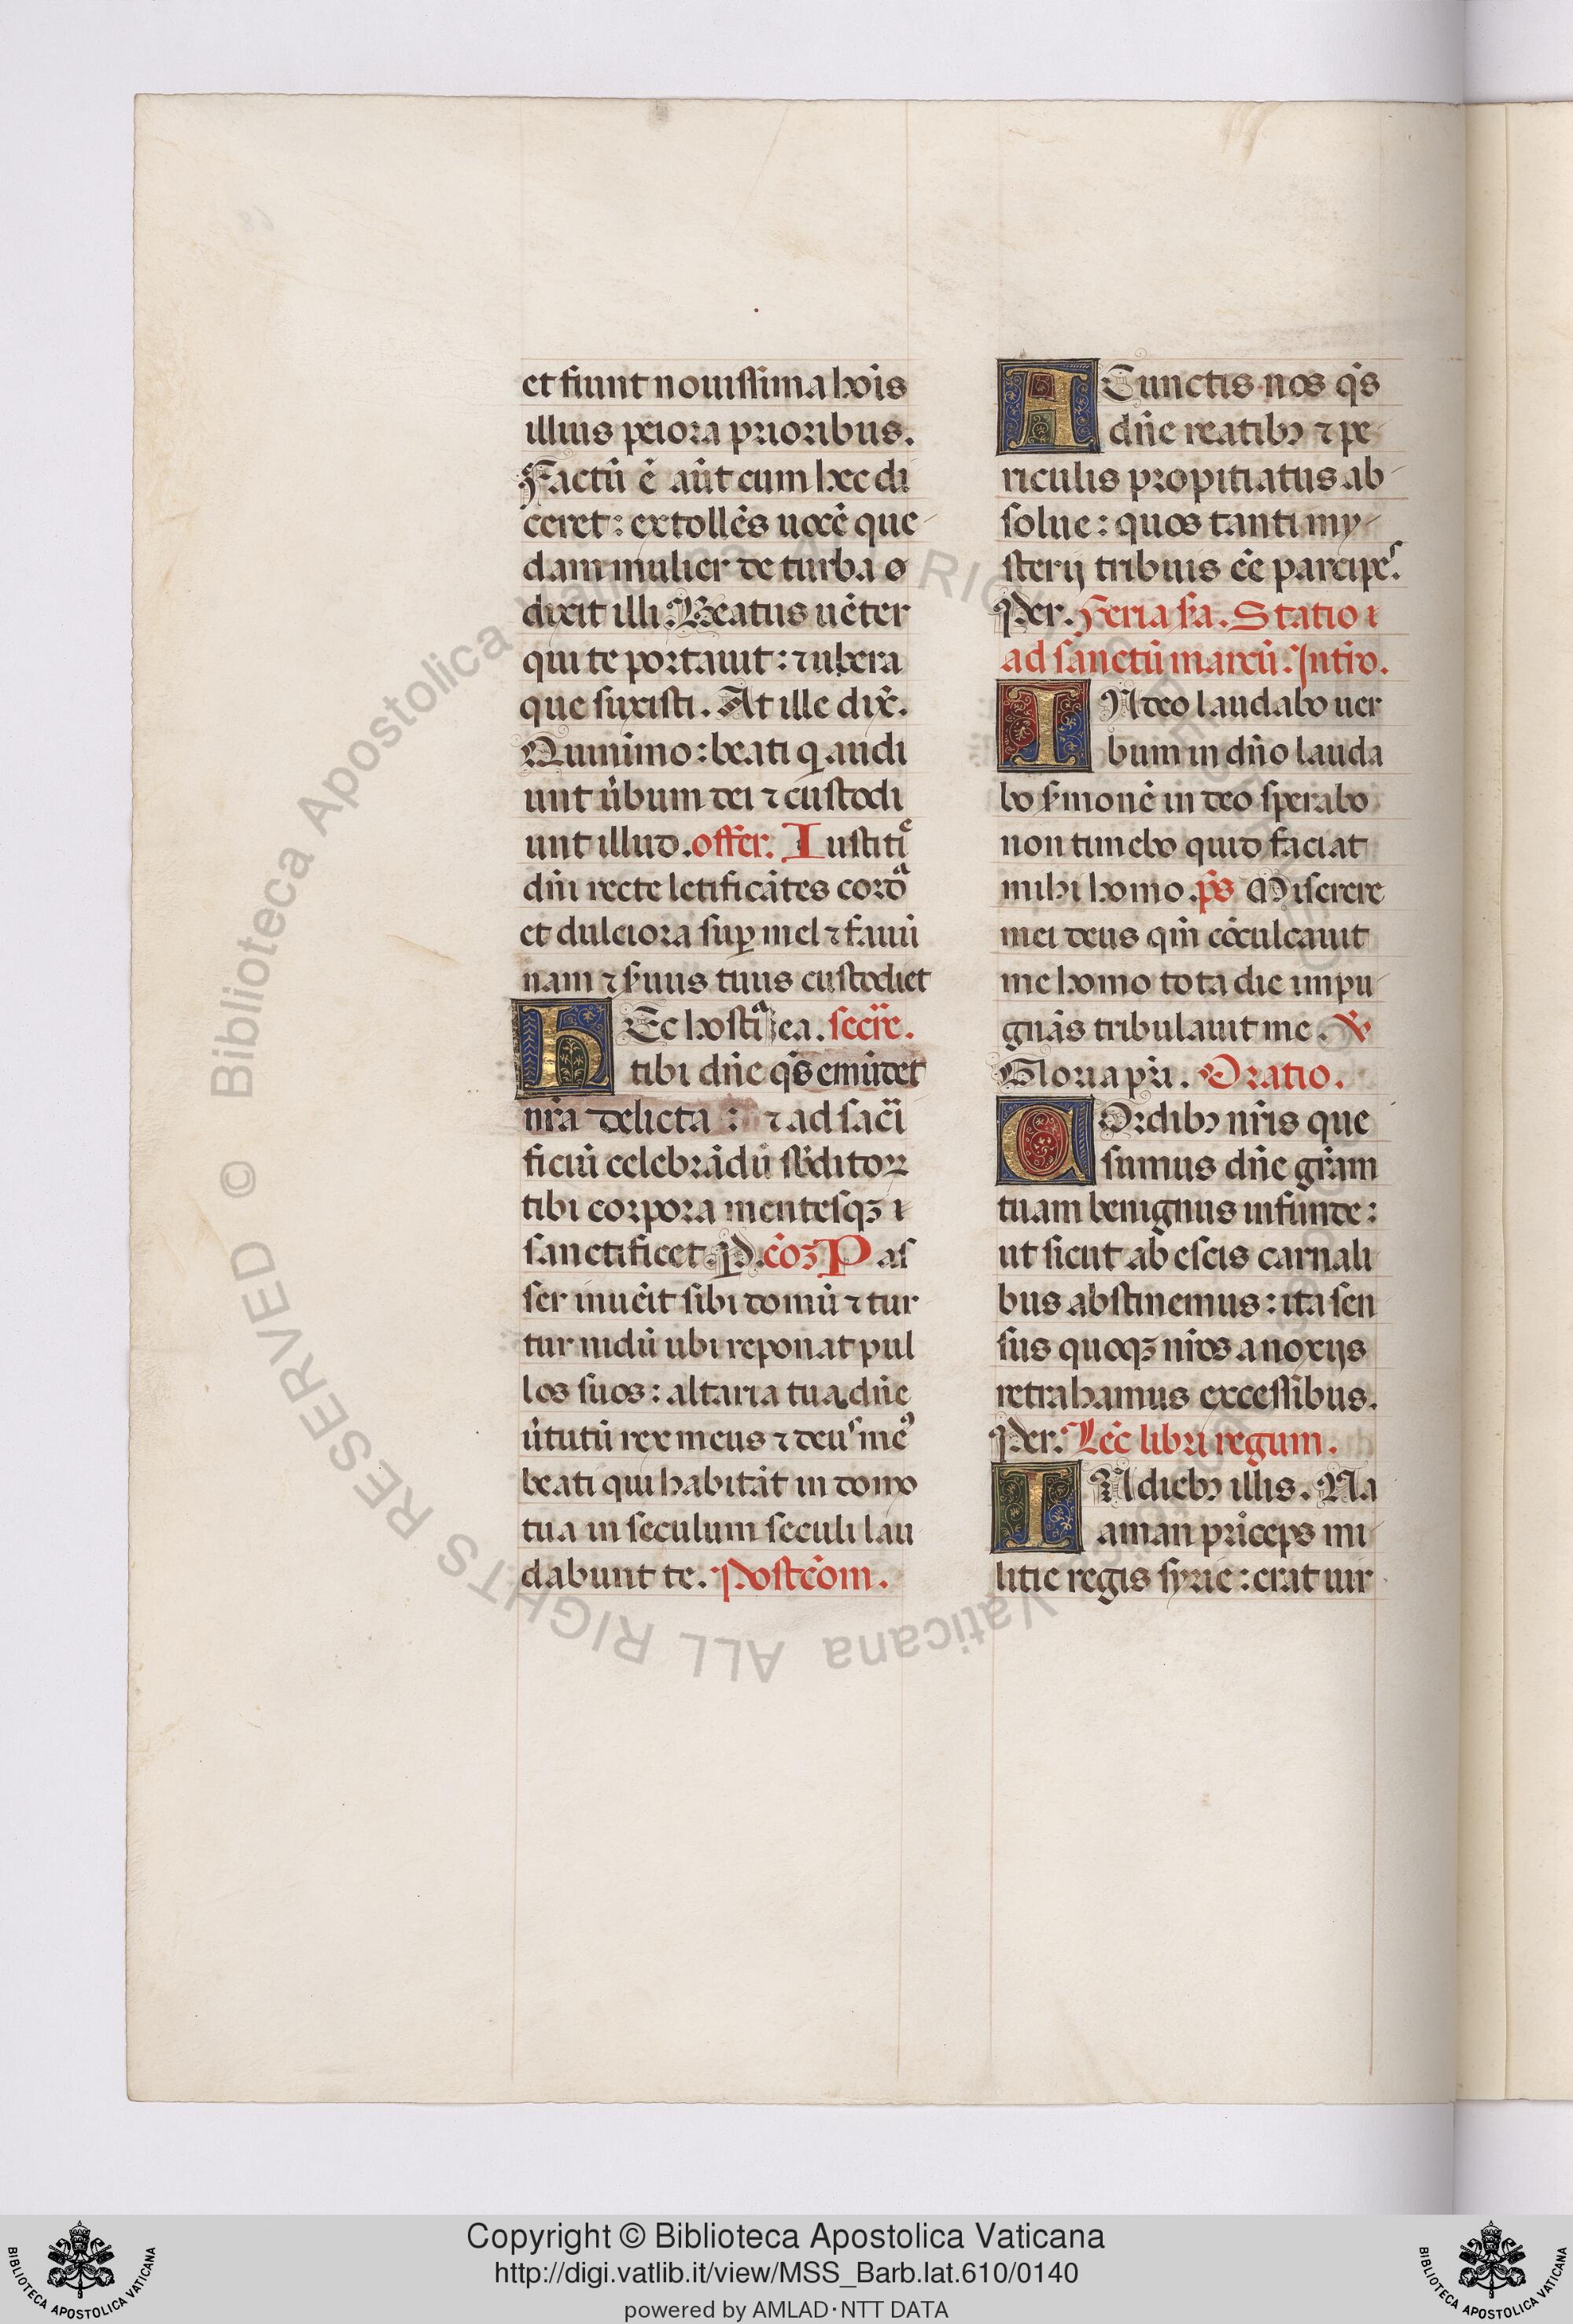 et fiunt nouissima hoı̄s
illius peiora prioribus.
Factū ē aūt cum hec di
ceret: extollēs uocē que-
dam mulier de turba
dixit illi. Beatus uēter
qui te portauit: ⁊ ubera
que suxisti. At ille dix̄.
Quinimo: beati q̇ audi
unt u̇bum dei ⁊ custodi
unt illud. offer. Iustitiᵉ
dn̄i recte letificātes cordᵃ
et dulciora suꝑ mel ⁊ fauū
nam ⁊ ẜuus tuus custodiet
HEc hostiᵃ ea. secrē.
tibi dn̄e qs̄ emūdet
nr̄a delicta: ⁊ ad sacı̄
ficiū celebrādū sb̄ditoꝝ
tibi corpora mentesqꝫ
sanctificet. P̲. cōꝫ Pas
ser inuēit sibi domū ⁊ tur
tur nidū ubi reponat pul
los suos: altaria tua dn̄e
u̇tutū rex meus ⁊ deuˢ meꝰ
beati qui habitāt in domo
tua in seculum seculi lau
dabunt te. Postcōm.
ACunctis nos qs̄
dn̄e reatibꝫ ⁊ pe-
riculis propitiatus ab-
solue: quos tanti my-
sterij tribuis ēē parcipeˢ.
Per. Feria ẜa. Statio
ad sānctū marcū. Intro.
IN deo laudabo uer
bum in dn̄o lauda
bo ẜmonē in deo sperabo
non timebo quid faciat
mihi homo. ps̄ Miserere
mei deus qm̄ cōculcauit
me homo tota die impu-
gnās tribulauit me. ℣
Gloria pr̄i. Oratio.
COrdibꝫ nr̄is que
sumus dn̄e gr̄am
tuam benignus infunde:
ut sicut ab escis carnali
bus abstinemus: ita sen
sus quoqꝫ nr̄os a noxijs
retrahamus excessibus.
Per. Lēc libri regum.
IN diebꝫ illis. Na
aman prı̄ceps mi-
litie regis syrie: erat uir
© Biblioteca Apostolica Vaticana ALL RIGHTS RESERVED
Copyright © Biblioteca Apostolica Vaticana
http://digi.vatlib.it/view/MSS_Barb.lat.610/0140
powered by AMLAD·NTT DATA
BIBLIOTECA APOSTOLICA VATICANA
BIBLIOTECA APOSTOLICA VATICANA